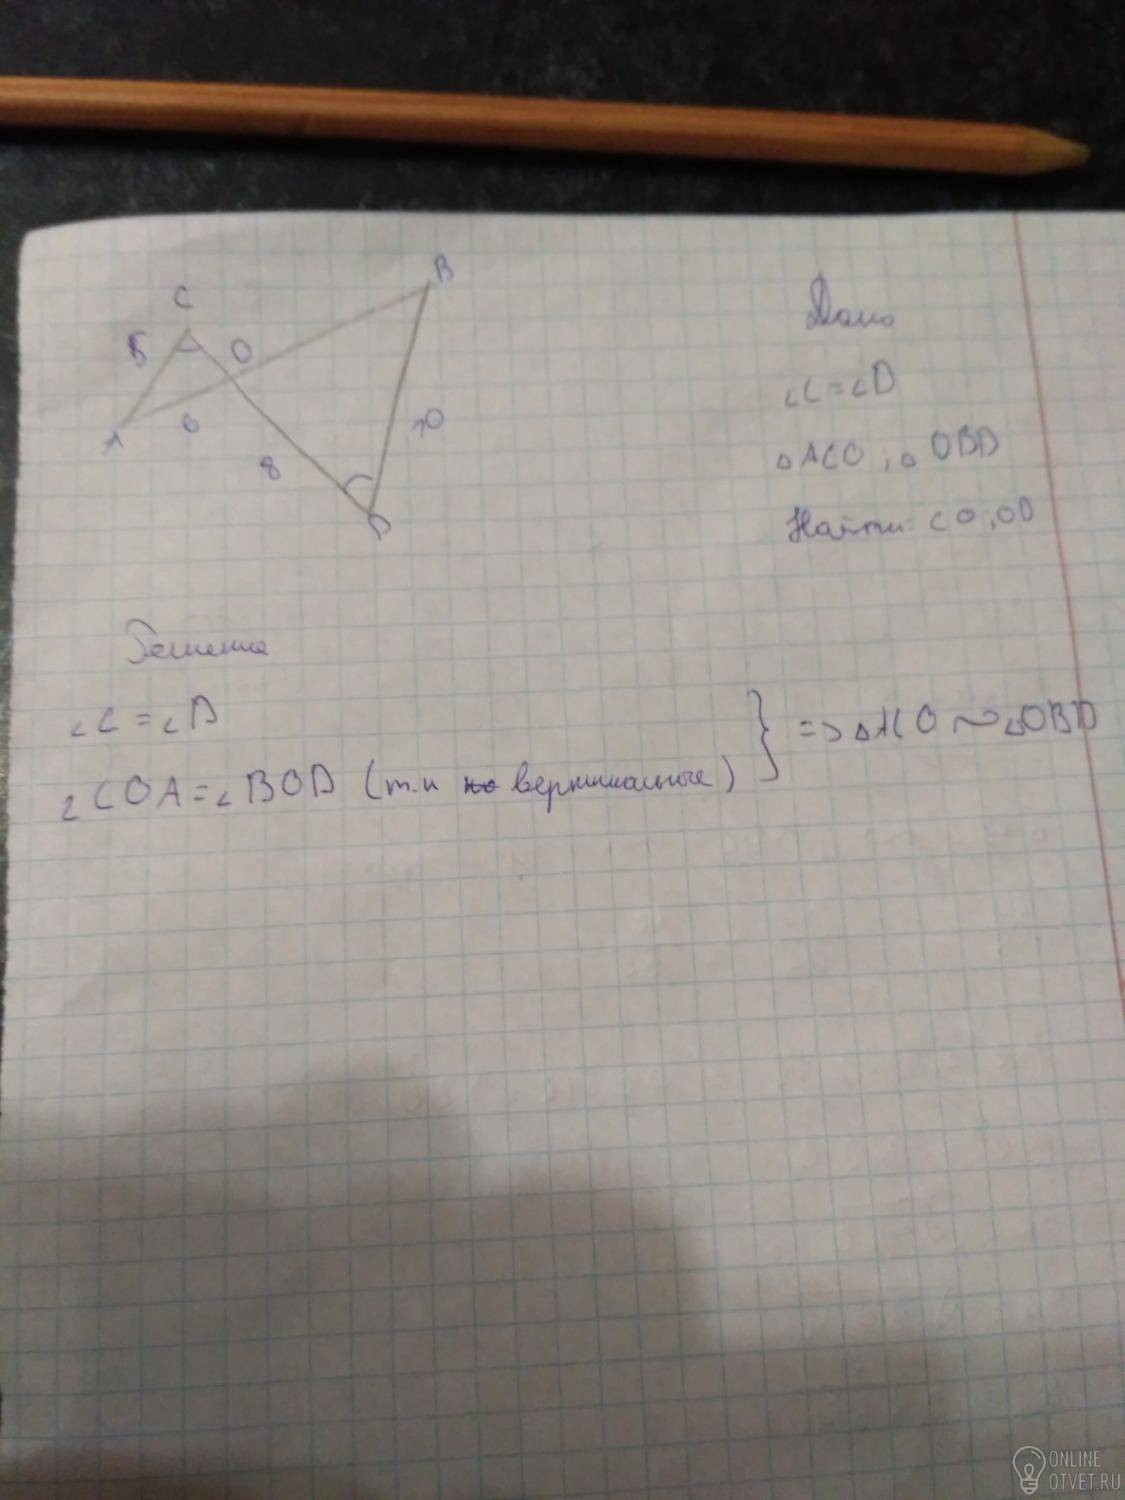 C
B
5
O
A
6
8
10
D
Дано
∠C=∠D
△ACO; △OBD
Найти: CO, OD
Решение
∠C=∠D
∠COA=∠BOD (т.к вертикальные) } => △ACO ~ △OBD
ONLINE
OTVET.RU